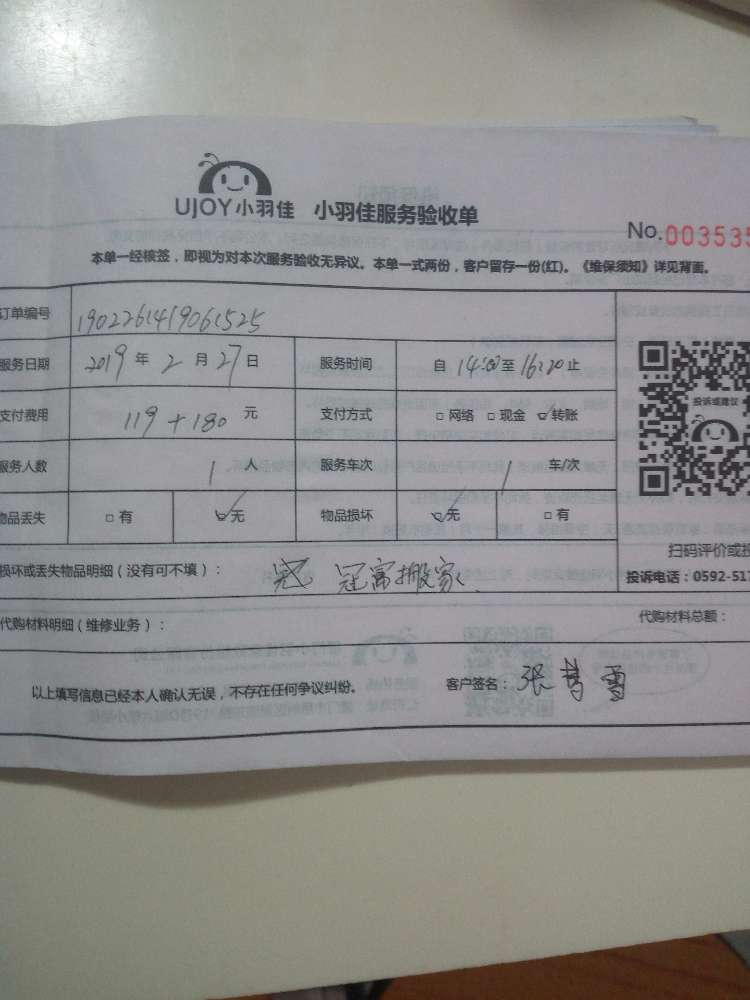 UJOY小羽佳 小羽佳服务验收单
No.003535
本单一经核签，即视为对本次服务验收无异议。本单一式两份，客户留存一份(红)。《维保须知》详见背面。
订单编号 1902261419061525
服务日期 2019 年 2 月 27 日 服务时间 自 14:00 至 16:20 止
投诉或建议
支付费用 119+180 元 支付方式 □网络 □现金 ☑转账
服务人数 1 人 服务车次 1 车/次
物品丢失 □有 ☑无 物品损坏 ☑无 □有
扫码评价或投
损坏或丢失物品明细（没有可不填）： 冠富搬家
投诉电话：0592-517
代购材料明细（维修业务）： 代购材料总额：
以上填写信息已经本人确认无误，不存在任何争议纠纷。 客户签名：张梦雪